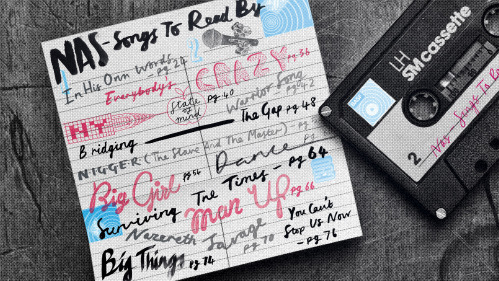 NAS - Songs To Read By
In His Own Words - pg 24
Everybody's CRAZY pg 56
State of mind pg 40
Warrior Song pg 42
HY
Bridging The Gap pg 48
NIGGER (The Slave and The Master) - pg
Dance
Big Girl pg 54
Surviving The Times - pg 64
Man Up pg 66
Nazareth Savage pg 70
You Can't
Stop Us Now
- pg 76
Big Things pg 74
LH
SM cassette
2
Nas Songs To